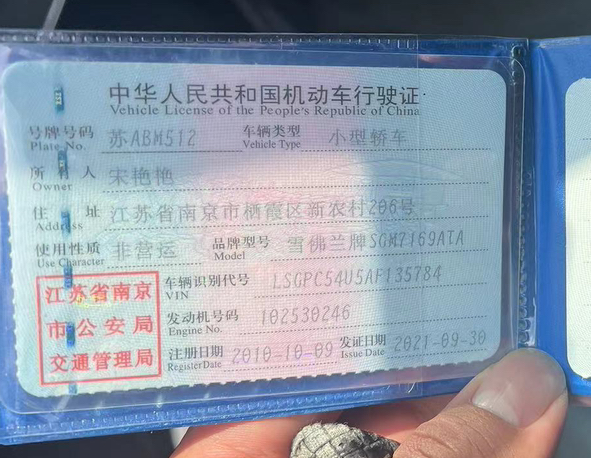 中华人民共和国机动车行驶证
Vehicle License of the People's Republic of China
号牌号码 苏ABM512 车辆类型 小型轿车
Plate No. Vehicle Type
所有人 宋艳艳
Owner
住址 江苏省南京市栖霞区新农村206号
Address
使用性质 非营运 品牌型号 雪佛兰牌SGM7169ATA
Use Character Model
江苏省南京
市公安局
交通管理局
车辆识别代号 LSGPC54U5AF135784
VIN
发动机号码 102530246
Engine No.
注册日期 2010-10-09 发证日期 2021-09-30
Register Date Issue Date